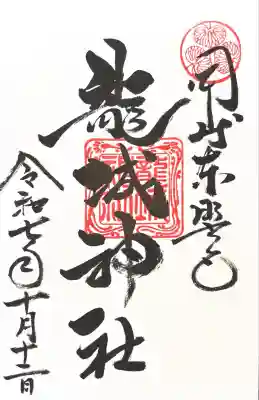 岡崎東照宮
龍城神社
令和七年十月十二日